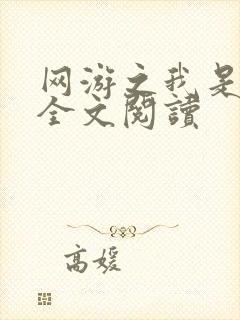 网游之我是
全文閱讀
高媛